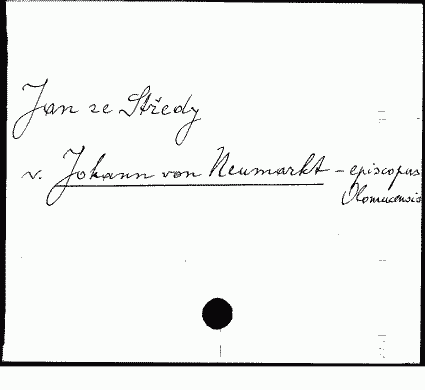 Jan ze Středy
v. Johann von Neumarkt - episcopus
Olomucensis